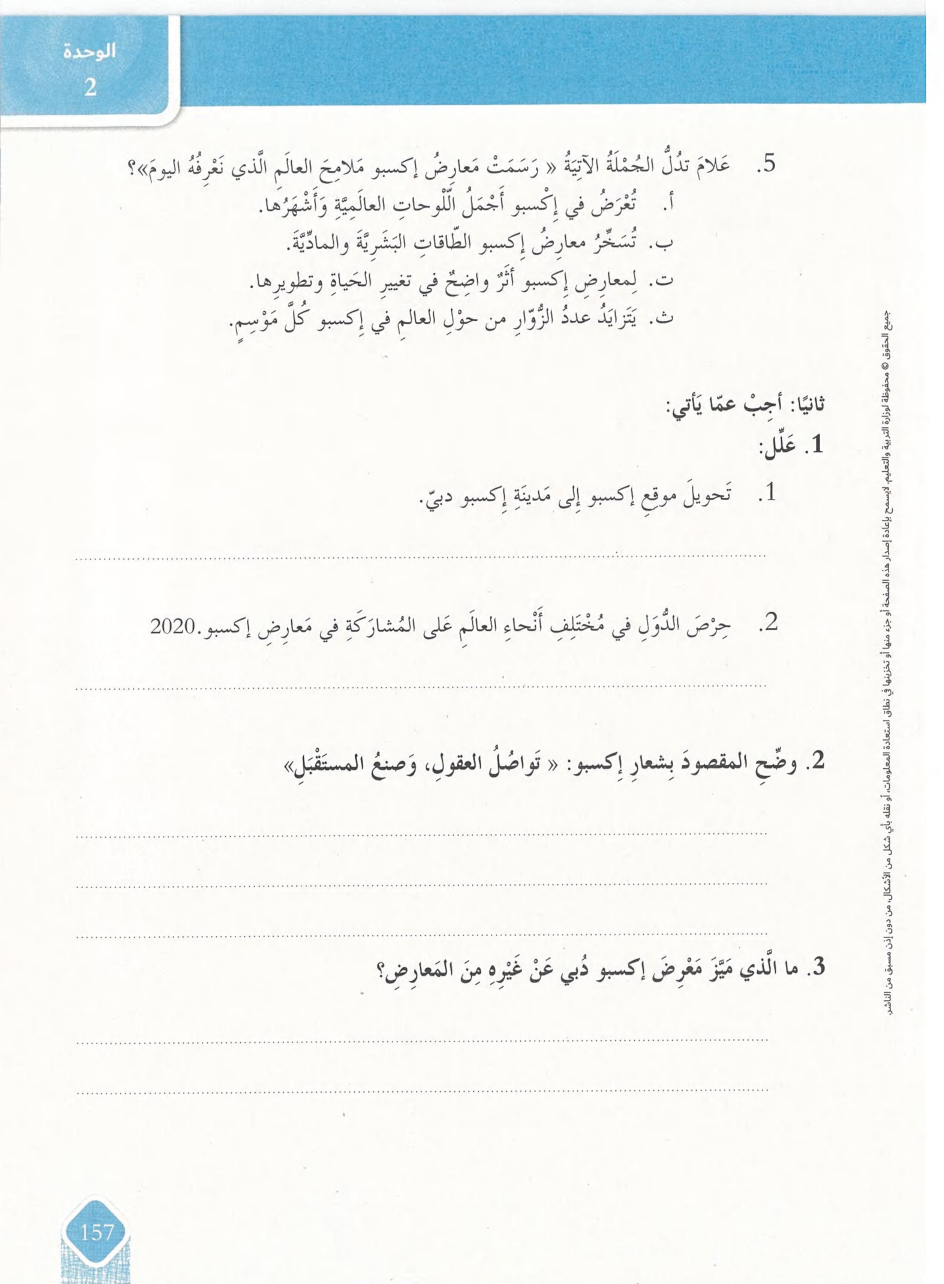 الوحدة
2
5. عَلامَ تدُلُّ الجُمْلَةُ الآتِيَةُ « رَسَمَتْ مَعارِضُ إكسبو مَلامِحَ العالَمِ الَّذي نَعْرِفُهُ اليومَ»؟
أ. تُعْرَضُ في إِكْسبو أَجْمَلُ اللَّوحاتِ العالَمِيَّةِ وَأَشْهَرُها.
ب. تُسَخِّرُ معارِضُ إِكسبو الطّاقاتِ البَشَرِيَّةَ والمادِّيَّةَ.
ت. لِمعارِضِ إِكسبو أَثَرٌ واضِحٌ في تغييرِ الحَياةِ وتطويرِها.
ث. يَتَزايَدُ عددُ الزُّوّارِ من حوْلِ العالمِ في إكسبو كُلَّ مَوْسِمٍ.
ثانيًا: أجِبْ عمّا يَأتي:
1. عَلِّل:
1. تَحويلَ موقعِ إكسبو إلى مَدينَةِ إِكسبو دبيّ.
2. حِرْصَ الدُّوَلِ في مُخْتَلِفِ أَنْحاءِ العالَمِ عَلى المُشارَكَةِ في مَعارِضِ إكسبو.2020
2. وضِّحِ المقصودَ بِشعارِ إِكسبو: « تَواصُلُ العقولِ، وَصنعُ المستَقْبَلِ»
3. ما الَّذي مَيَّزَ مَعْرِضَ إكسبو دُبي عَنْ غَيْرِهِ مِنَ المَعارِضِ؟
جميع الحقوق © محفوظة لوزارة التربية والتعليم. لايسمح بإعادة إصدار هذه الصفحة أو جزء منها أو تخزينها في نطاق استعادة المعلومات، أو نقله بأي شكل من الأشكال، من دون إذن مسبق من الناشر.
157